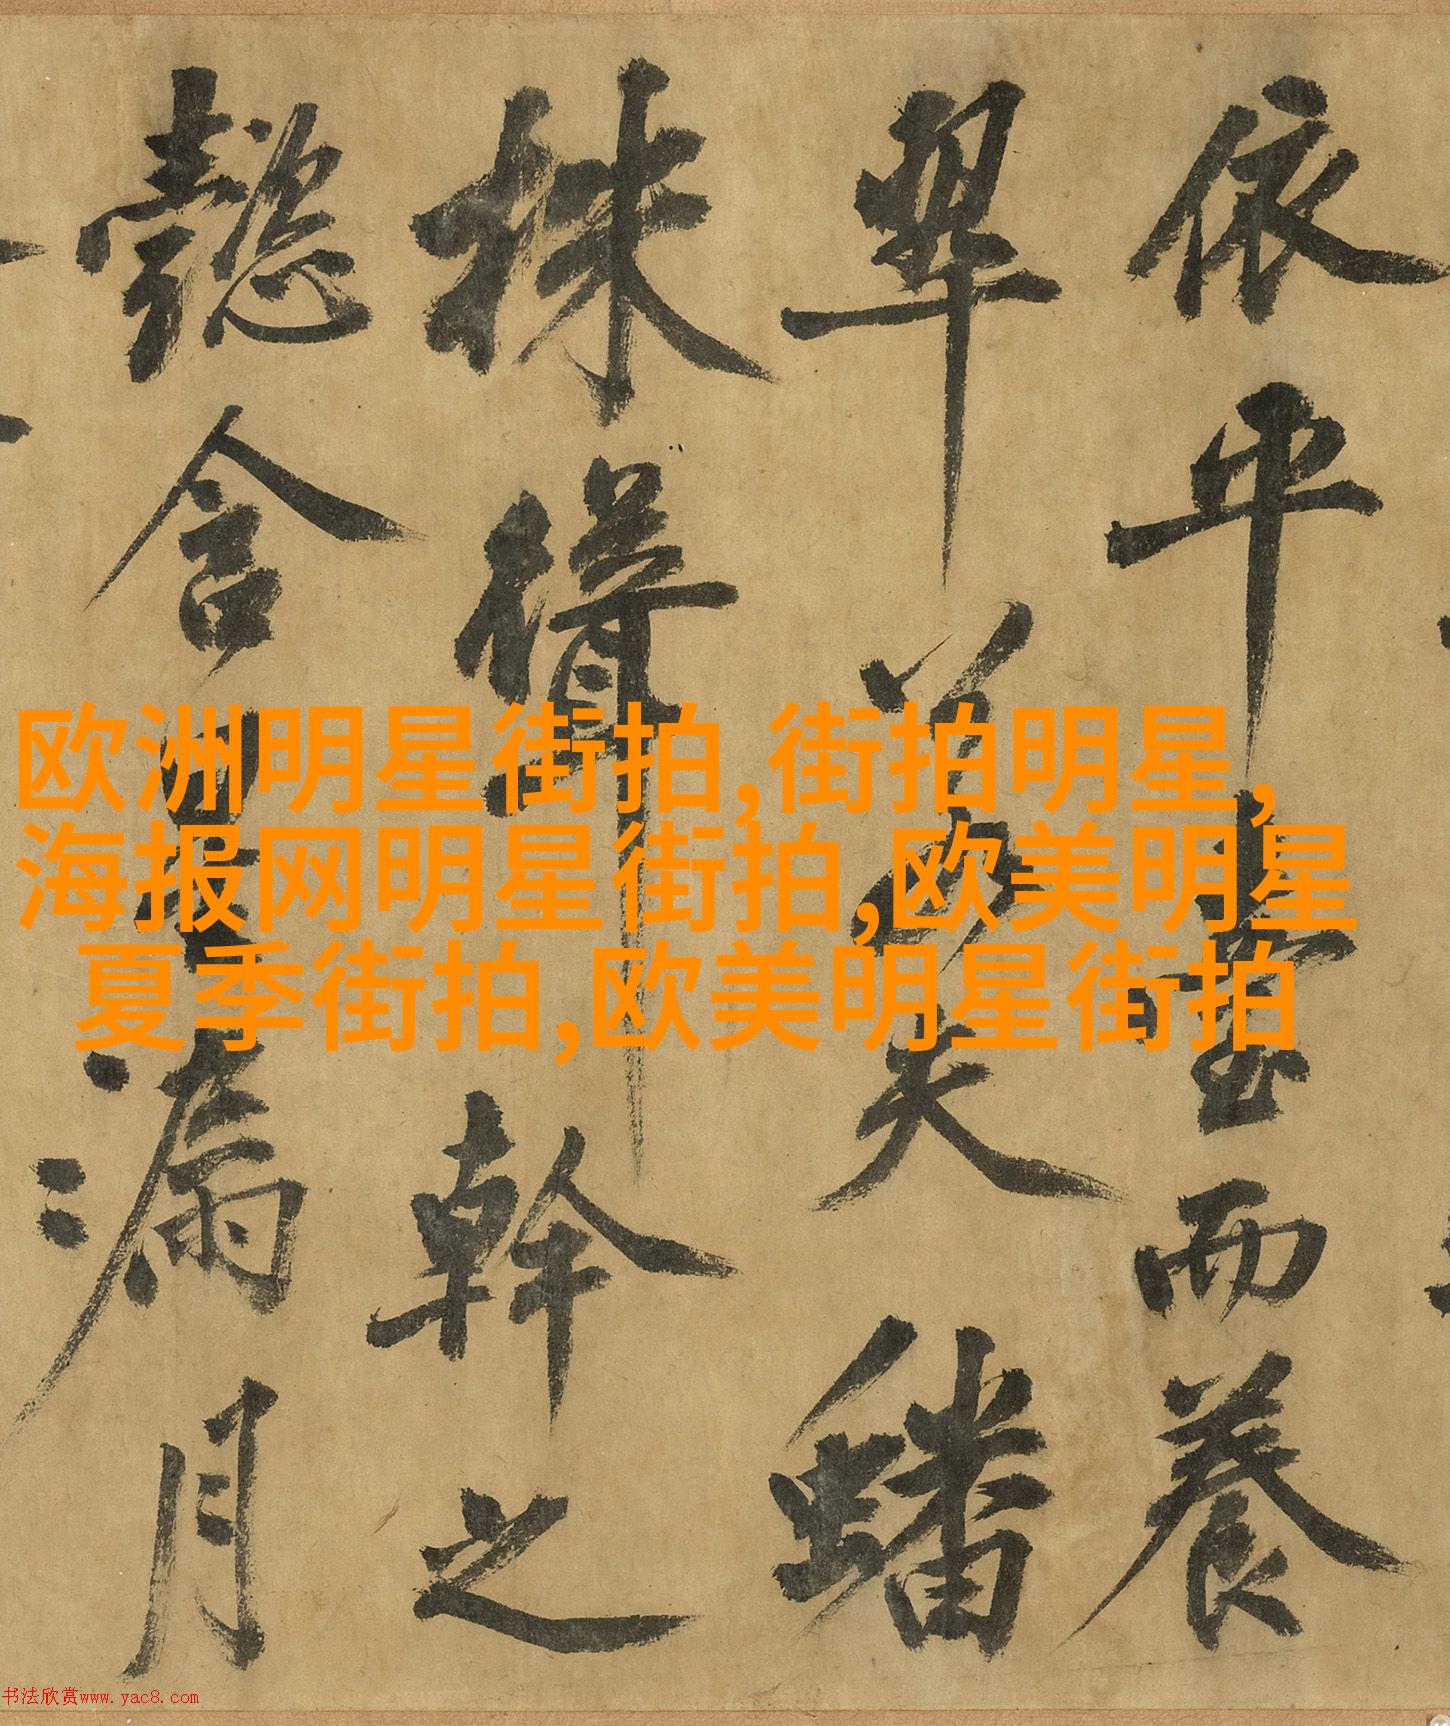 依平臺而養
翠若夫蟠
株擢幹之
懿含
漏月
欧洲明星街拍,街拍明星,
海报网明星街拍,欧美明星
夏季街拍,欧美明星街拍
书法欣赏www.yac8.com